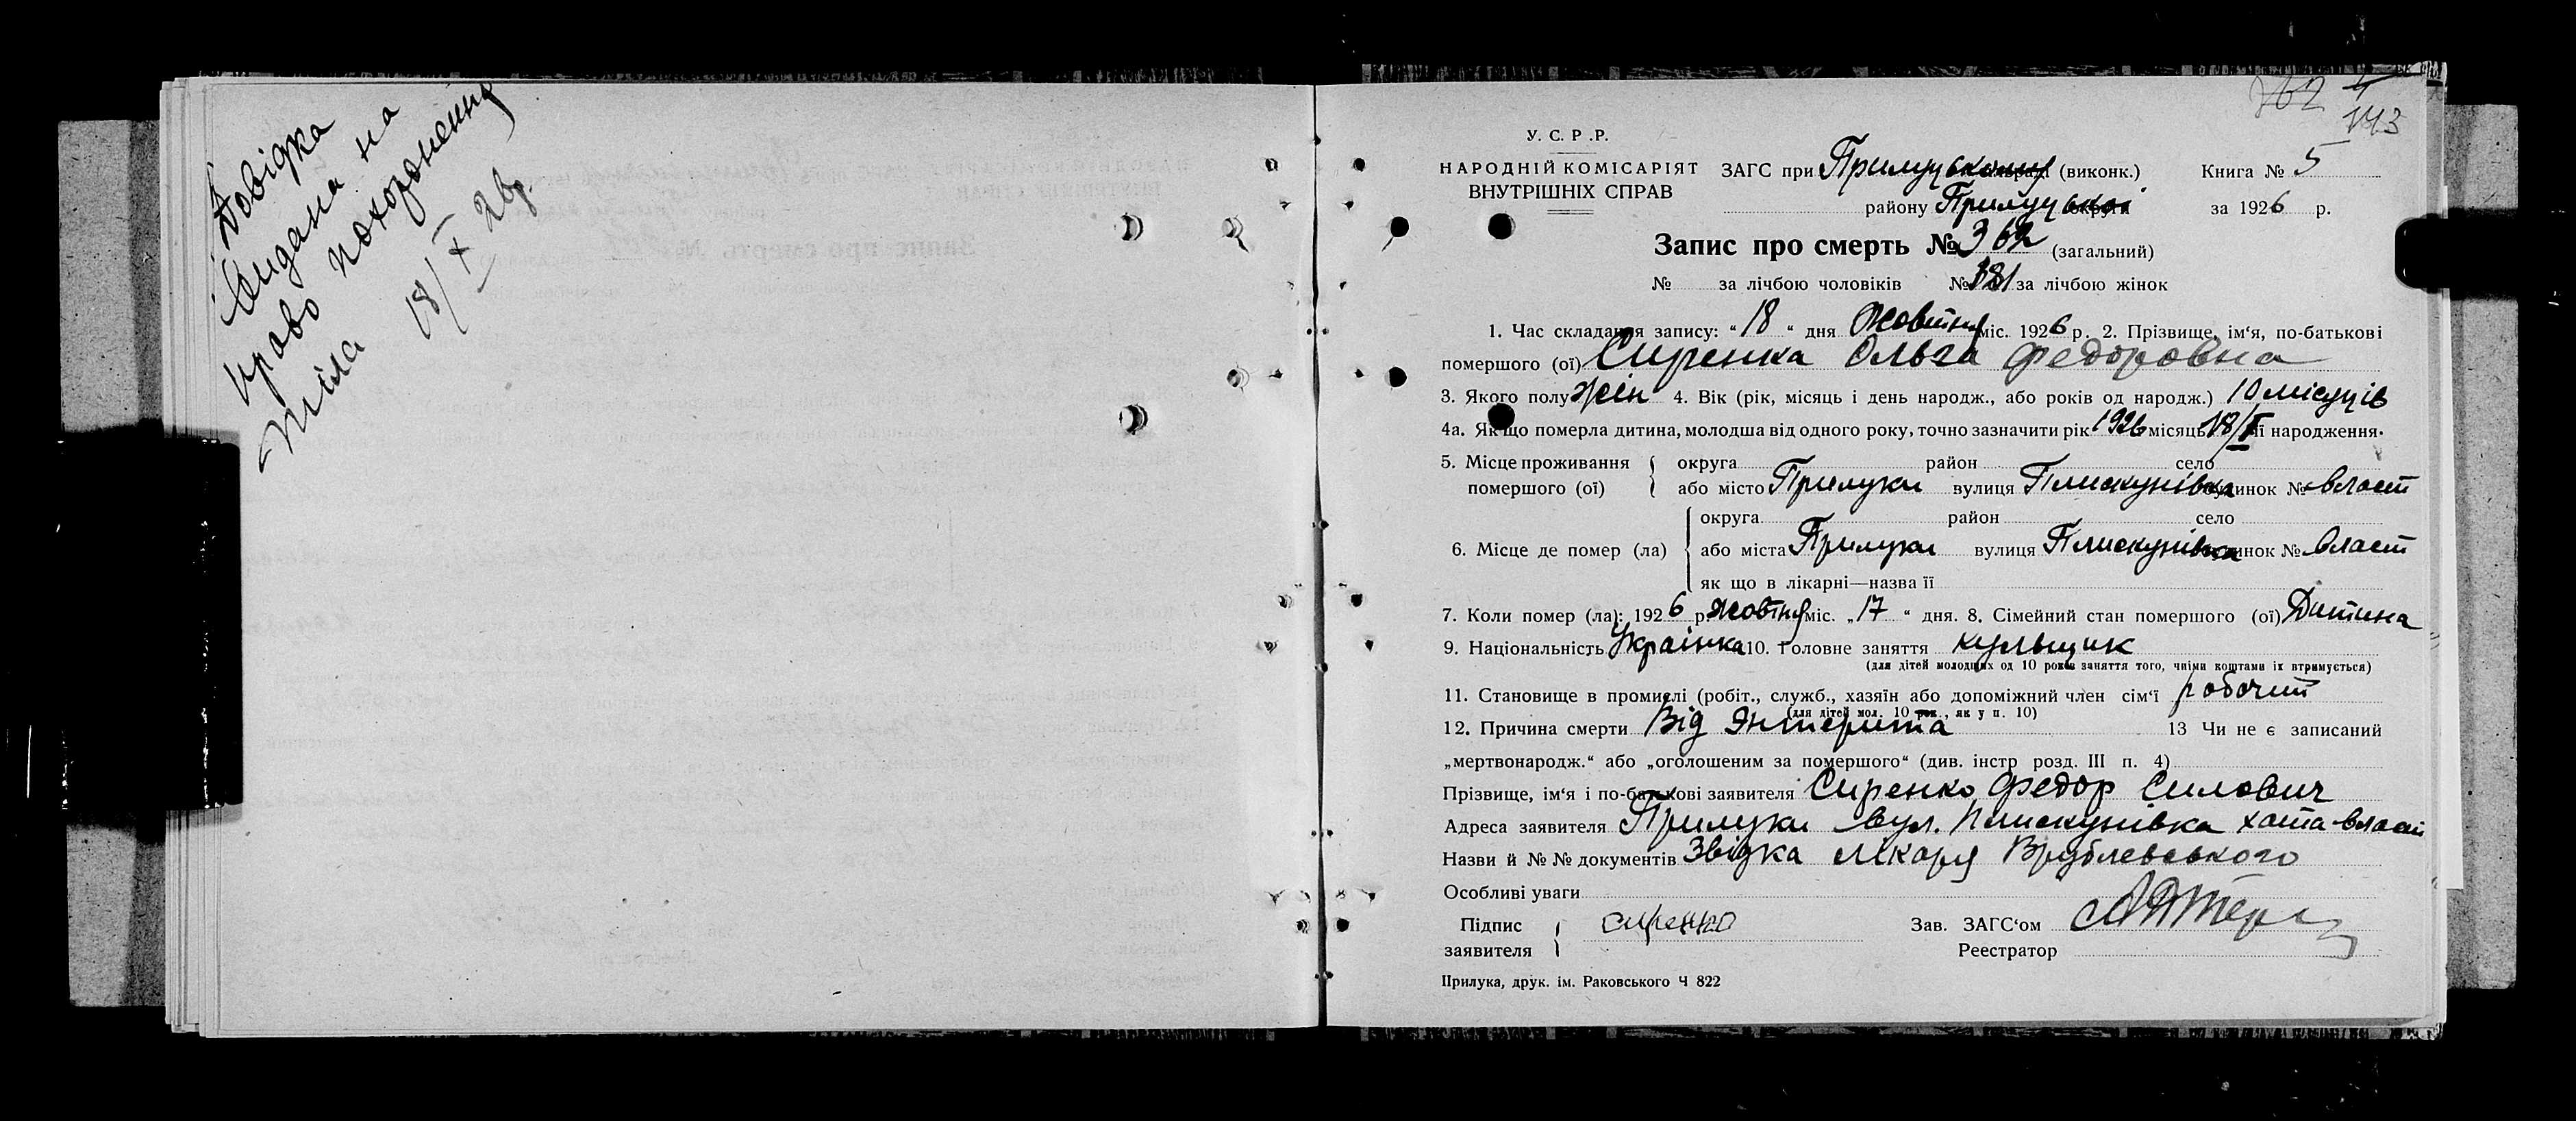 Довідка
видана на
право похоронення
тіла 18/X 26 р
143
У. С. Р. Р.
НАРОДНІЙ КОМІСАРІЯТ
ВНУТРІШНІХ СПРАВ
ЗАГС при Прилуцькому (виконк.) Книга № 5
району Прилуцької округи за 1926 р.
Запис про смерть № 362 (загальний)
№ за лічбою чоловіків № 181 за лічбою жінок
1. Час складання запису: "18" дня Жовтня міс. 1926 р. 2. Прізвище, ім'я, по-батькові
помершого (ої) Сиренка Ольга Федоровна
3. Якого полу жін 4. Вік (рік, місяць і день народж., або років од народж.) 10 місуців
4а. Якщо померла дитина, молодша від одного року, точно зазначити рік 1926 місяць 18/I її народження.
5. Місце проживання округа район село
помершого (ої) або місто Прилуки вулиця Плискунівка будинок № власт
округа район село
6. Місце де помер (ла) або міста Прилуки вулиця Плискунівка будинок № власт
як що в лікарні—назва її
7. Коли помер (ла): 1926 р. жовтня міс. „17" дня. 8. Сімейний стан помершого (ої) Дитина
9. Національність Українка 10. Головне заняття кульщик
(для дітей молодших од 10 років заняття того, чиїми коштами їх втримується)
11. Становище в промислі (робіт., служб., хазяїн або допоміжний член сім'ї робочит
(для дітей мол. 10 рок., як у п. 10)
12. Причина смерти Від Энтерита 13 Чи не є записаний
„мертвонародж." або „оголошеним за помершого" (див. інстр розд. III п. 4)
Прізвище, ім'я і по-батькові заявителя Сиренко Федор Силович
Адреса заявителя Прилуки вул. Плискунівка хата власт
Назви й №№ документів Звідка лікаря Врублевського
Особливі уваги
Підпис
заявителя Сиренко
Зав. ЗАГС'ом
Реєстратор
Прилука, друк. ім. Раковського Ч 822